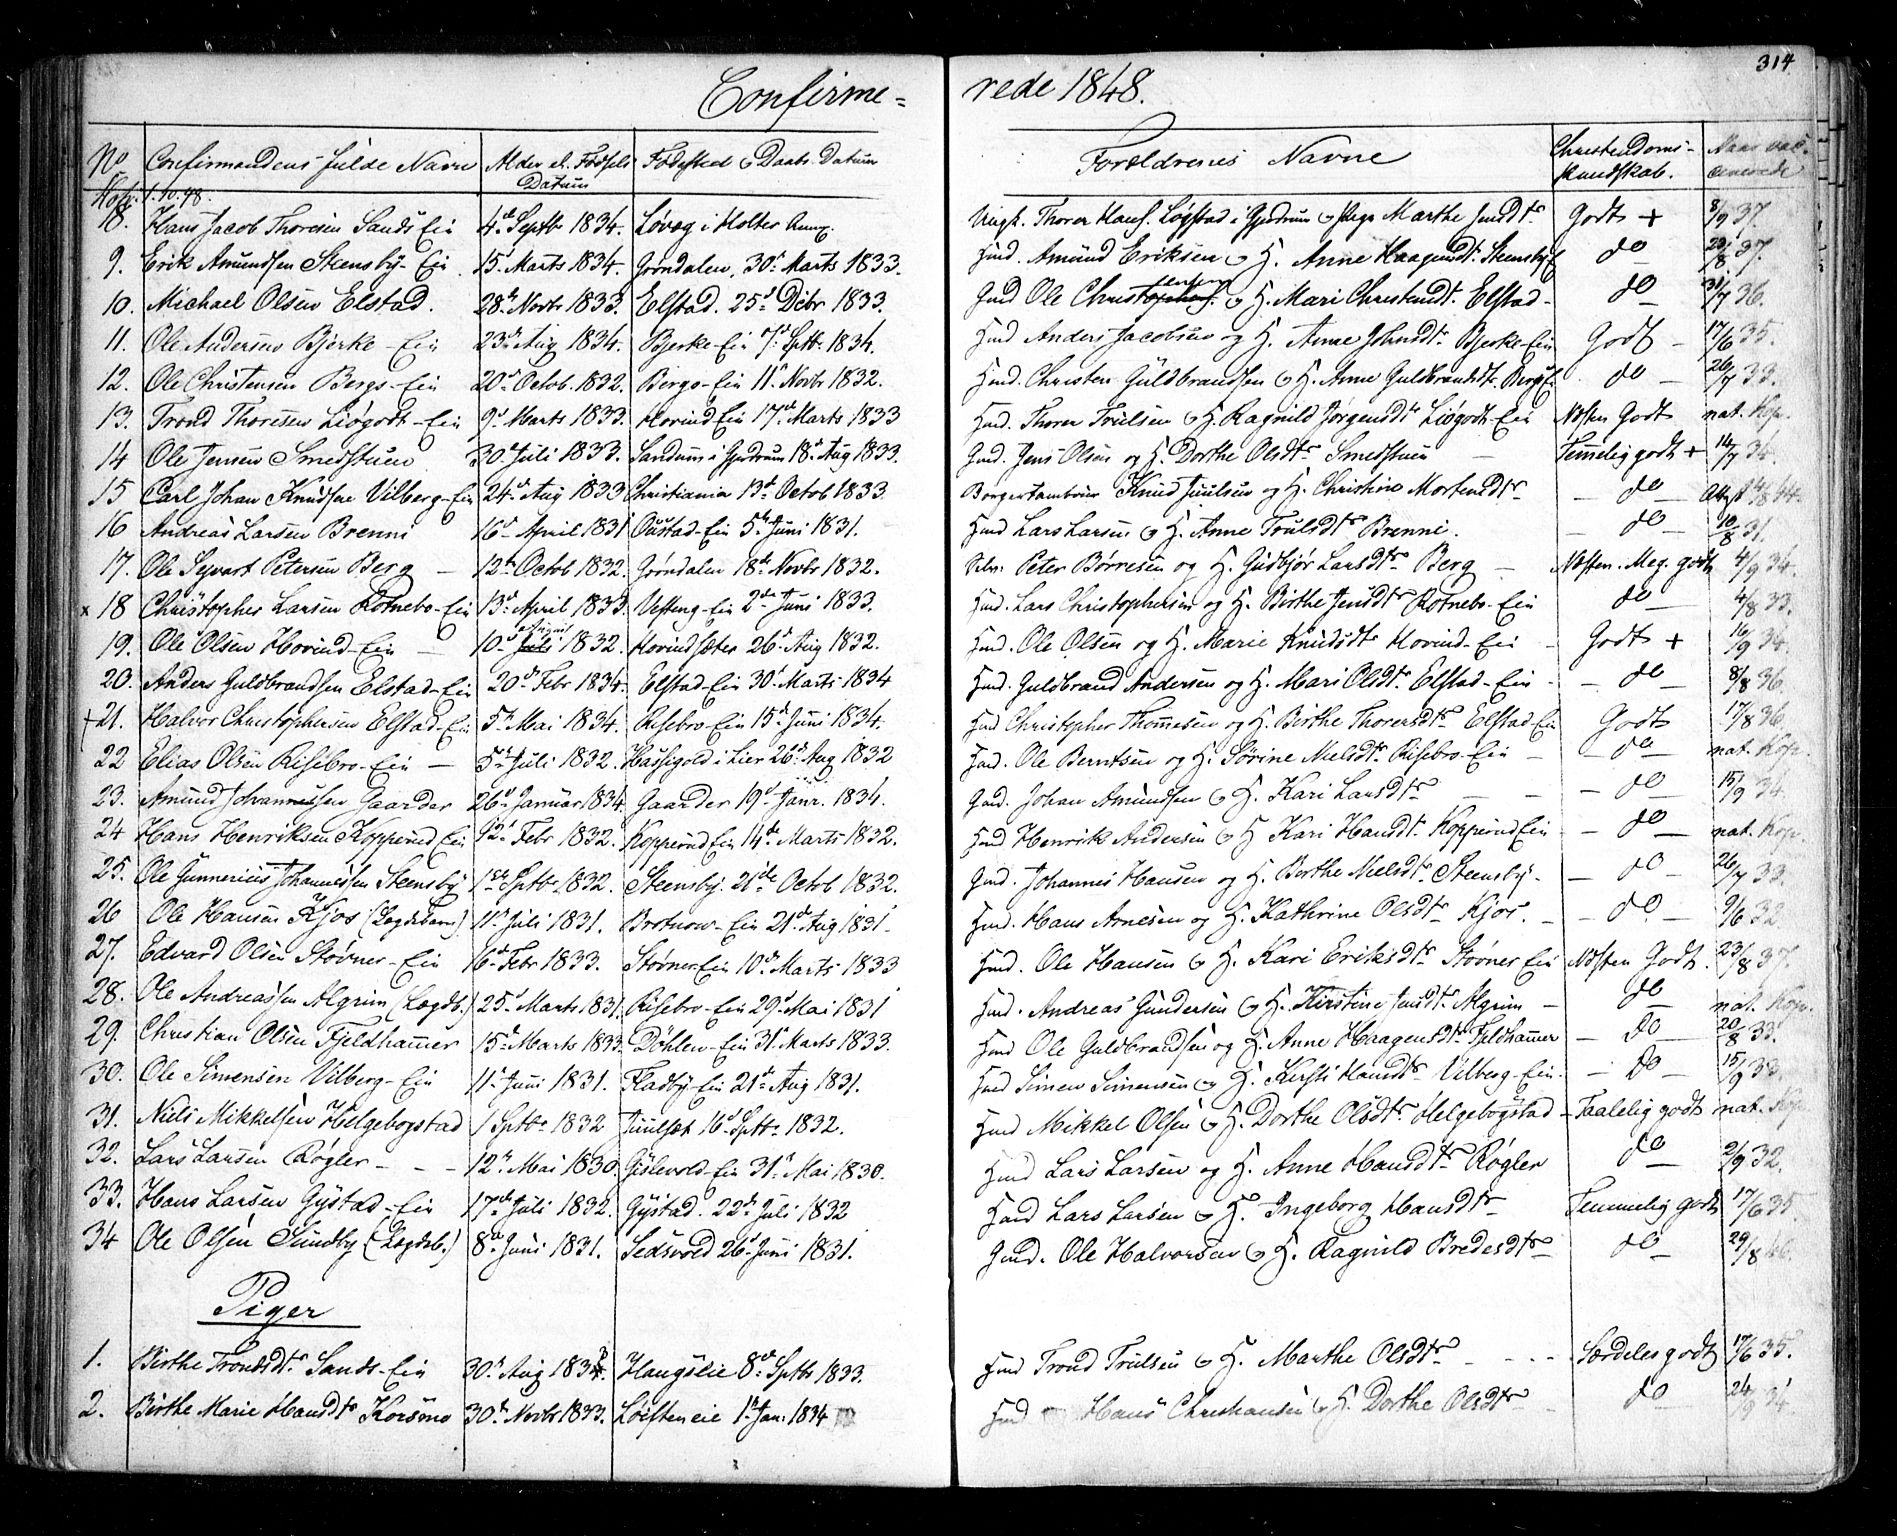 314
Confirme= rede 1848.
No Confirmandens fulde Navn Alder el. Fødsels Datum Fødested & Daabs-Datum Forældrenes Navne Christendoms-kundskab. Naar vac-cinerede
1.10.48.
18. Hans Jacob Thoresen Sands Ein 4de Septbr 1834. Løvæg i Holter Ungk. Thorer Hans. Løgstad i Gjerdrum & Pige Marthe Jensdtr Godt + 8/9 37.
9. Erik Amundsen Steensby-Ein 15 Marts 1834. Grøndalen, 30 Marts 1833. Huusd. Amund Eriksen & H. Anne Haagensdt. Steensby do 20/8 37.
10. Michael Olsen Elstad. 28de Novbr 1833. Elstad. 25d Decbr 1833. Gmd Ole Christensen & H. Mari Christiansdt. Elstad - do 31/7 36.
11. Ole Andersen Bjerke-Ein 23d Aug 1834. Bjerke-Ein 7d Sptbr 1834. Hmd Anders Jacobsen og H. Anne Johnsdtr Bjerke-Ein Godt 17/6 35.
12. Ole Christensen Bergs-Ein 20d Octob. 1832. Bergs-Ein 11d Novbr 1832. Hmd. Christen Guldbrandsen & H. Anne Guldbrandsdtr Bergs E. do 26/7 33.
13. Trond Thoresen Liøgodt-Ein 9d Marts 1833. Hovind Ein 17de Marts 1833 Hmd. Thorer Trulsen & H. Ragnild Jørgensdtr Liøgodt-Ein Næsten Godt nat. Kop.
14 Ole Jensen Smedstuen 30d Juli 1833. Sandum i Gjerdrum 18d Aug 1833. Gmd. Jens Olsen og H. Dorthe Olsdtr Smedstuen Temmelig godt + 14/7 34.
15 Carl Johan Knudsen Vilberg-Ein 24d Aug 1833 Christiania 13d Octob 1833 Borgertambour Knud Juulsen og H. Christine Mortensdtr - do - Attest
16 Andreas Larsen Brenni 16d April 1831 Oustad-Ein 5d Juni 1831. Hmd Lars Larsen & H. Anne Trulsdtr Brenni. - do - 10/8 31.
17. Ole Syvart Petersen Berg 12te Octob 1832. Grøndalen 18de Novbr 1832. Peter Børresen og H. Gudbjør Larsdtr Berg Næsten Meg. godt 4/9 34.
x 18 Christopher Larsen Kotnebo-Ein 13d April 1833. Vesteng-Ein 2den Juni 1833. Hmd. Lars Christophersen og H. Birthe Jensdtr Kotnebo-Ein do 4/8 33.
19. Ole Olsen Hovind-Ein 10d August 1832. Hovindsæter 26d Aug 1832. Hmd. Ole Olsen og H. Marie Knudsdtr Hovind-Ein Godt + 16/9 34.
20. Anders Guldbrandsen Elstad-Ein 20d Febr 1834. Elstad-Ein 30d Marts 1834 Hmd. Guldbrand Andersen og H. Mari Olsdtr Elstad-Ein - do - 8/8 36
+ 21. Halvor Christophersen Elstad-Ein 5te Mai 1834. Risebro-Ein 15d Juni 1834. Hmd Christopher Thommesen og H. Birthe Thorersdtr Elstad-Ein Godt 17/8 36.
22 Elias Olsen Risebro-Ein 5te Juli 1832. Hassigold i Lier 26d Aug 1832 Hmd. Ole Berntsen og H. Sørine Nielsdtr Risebro-Ein do nat. Kop.
23. Amund Johannessen Gaarder 26d Januar 1834. Gaarder 19d Janr. 1834. Gmd. Johan Amundsen & H. Kari Larsdtr - do 15/9 34
24 Hans Henriksen Kopperud Ein 12d Febr 1832. Kopperud Ein 14de Marts 1832. Hmd Henrik Andersen & H Kari Hansdt. Kopperud Ein - do - nat. Kop.
25. Ole Gunnerius Johannessen Steensby 1ste Sptbr 1832. Steensby. 21de Octob 1832. Gmd. Johannes Hansen og H. Berthe Nielsdtr Steensby - - do - 26/7 33.
26 Ole Hansen Kjos (Lægdsbarn) 11d Juli 1831. Brotnow-Ein 21d Aug 1831 Hmd. Hans Arnesen og H. Kathrine Olsdtr Kjos. - do - 9/6 32
27. Edvard Olsen Støvner-Ein 16d Febr 1833. Støvner-Ein 10de Marts 1833 Hmd. Ole Hansen & H. Kari Eriksdtr Støvner Ein Næsten Godt. 23/8 37.
28. Ole Andreassen Algrim (Lægdb.) 25d Marts 1831. Risebro-Ein 29d Mai 1831 Hmd. Andreas Gundersen & H. Kirstine Jensdt. Algrim - do nat. Kop.
29. Christian Olsen Fjeldhammer 15d Marts 1833. Døhlen-Ein 31d Marts 1833. Hmd Ole Guldbrandsen og H. Anne Haagensdtr Fjeldhammer - do - 20/8 33.
30. Ole Simensen Vilberg-Ein 11d Juni 1831. Fladby-Ein 21d Aug 1831. Hmd Simen Simensen & H. Kirsti Hansdtr Vilberg-Ein. - do - 15/9 33.
31. Niels Mikkelsen Helgebogstad 1 Sptbr 1832 Juulset 16d Sptbr 1832. Hmd Mikkel Olsen & H. Dorthe Olsdtr Helgebogstad - Taalelig godt nat. Kop
32. Lars Larsen Røgler - - - 12te Mai 1830. Gislevold-Ein 31d Mai 1830. Hmd Lars Larsen og H. Anne Hansdtr Røgler do 2/9 32.
33. Hans Larsen Gystad-Ein 17de Juli 1832. Gystad. 22de Juli 1832 Hmd Lars Larsen & H. Ingeborg Hansdtr Temmelig godt 17/6 35.
34 Ole Olsen Sundby (Lægdsb.) 8d Juni 1831. Sedsvold 26d Juni 1831. Gmd. Ole Halvorsen & H. Ragnild Bredesdtr do 29/8 46.
Piger
1. Birthe Trondsdtr Sands-Ein 30te Aug 1833. Haugslie 8d Sptbr 1833. Hmd Trond Trulsen & H. Marthe Olsdtr - - - - Særdeles godt 17/6 35.
2. Birthe Marie Hansdtr Korsmo 30te Novbr 1833. Løeften eie 1d Jan. 1834 Hmd Hans Christiansen & H. Dorthe Olsdtr - do 24/9 34